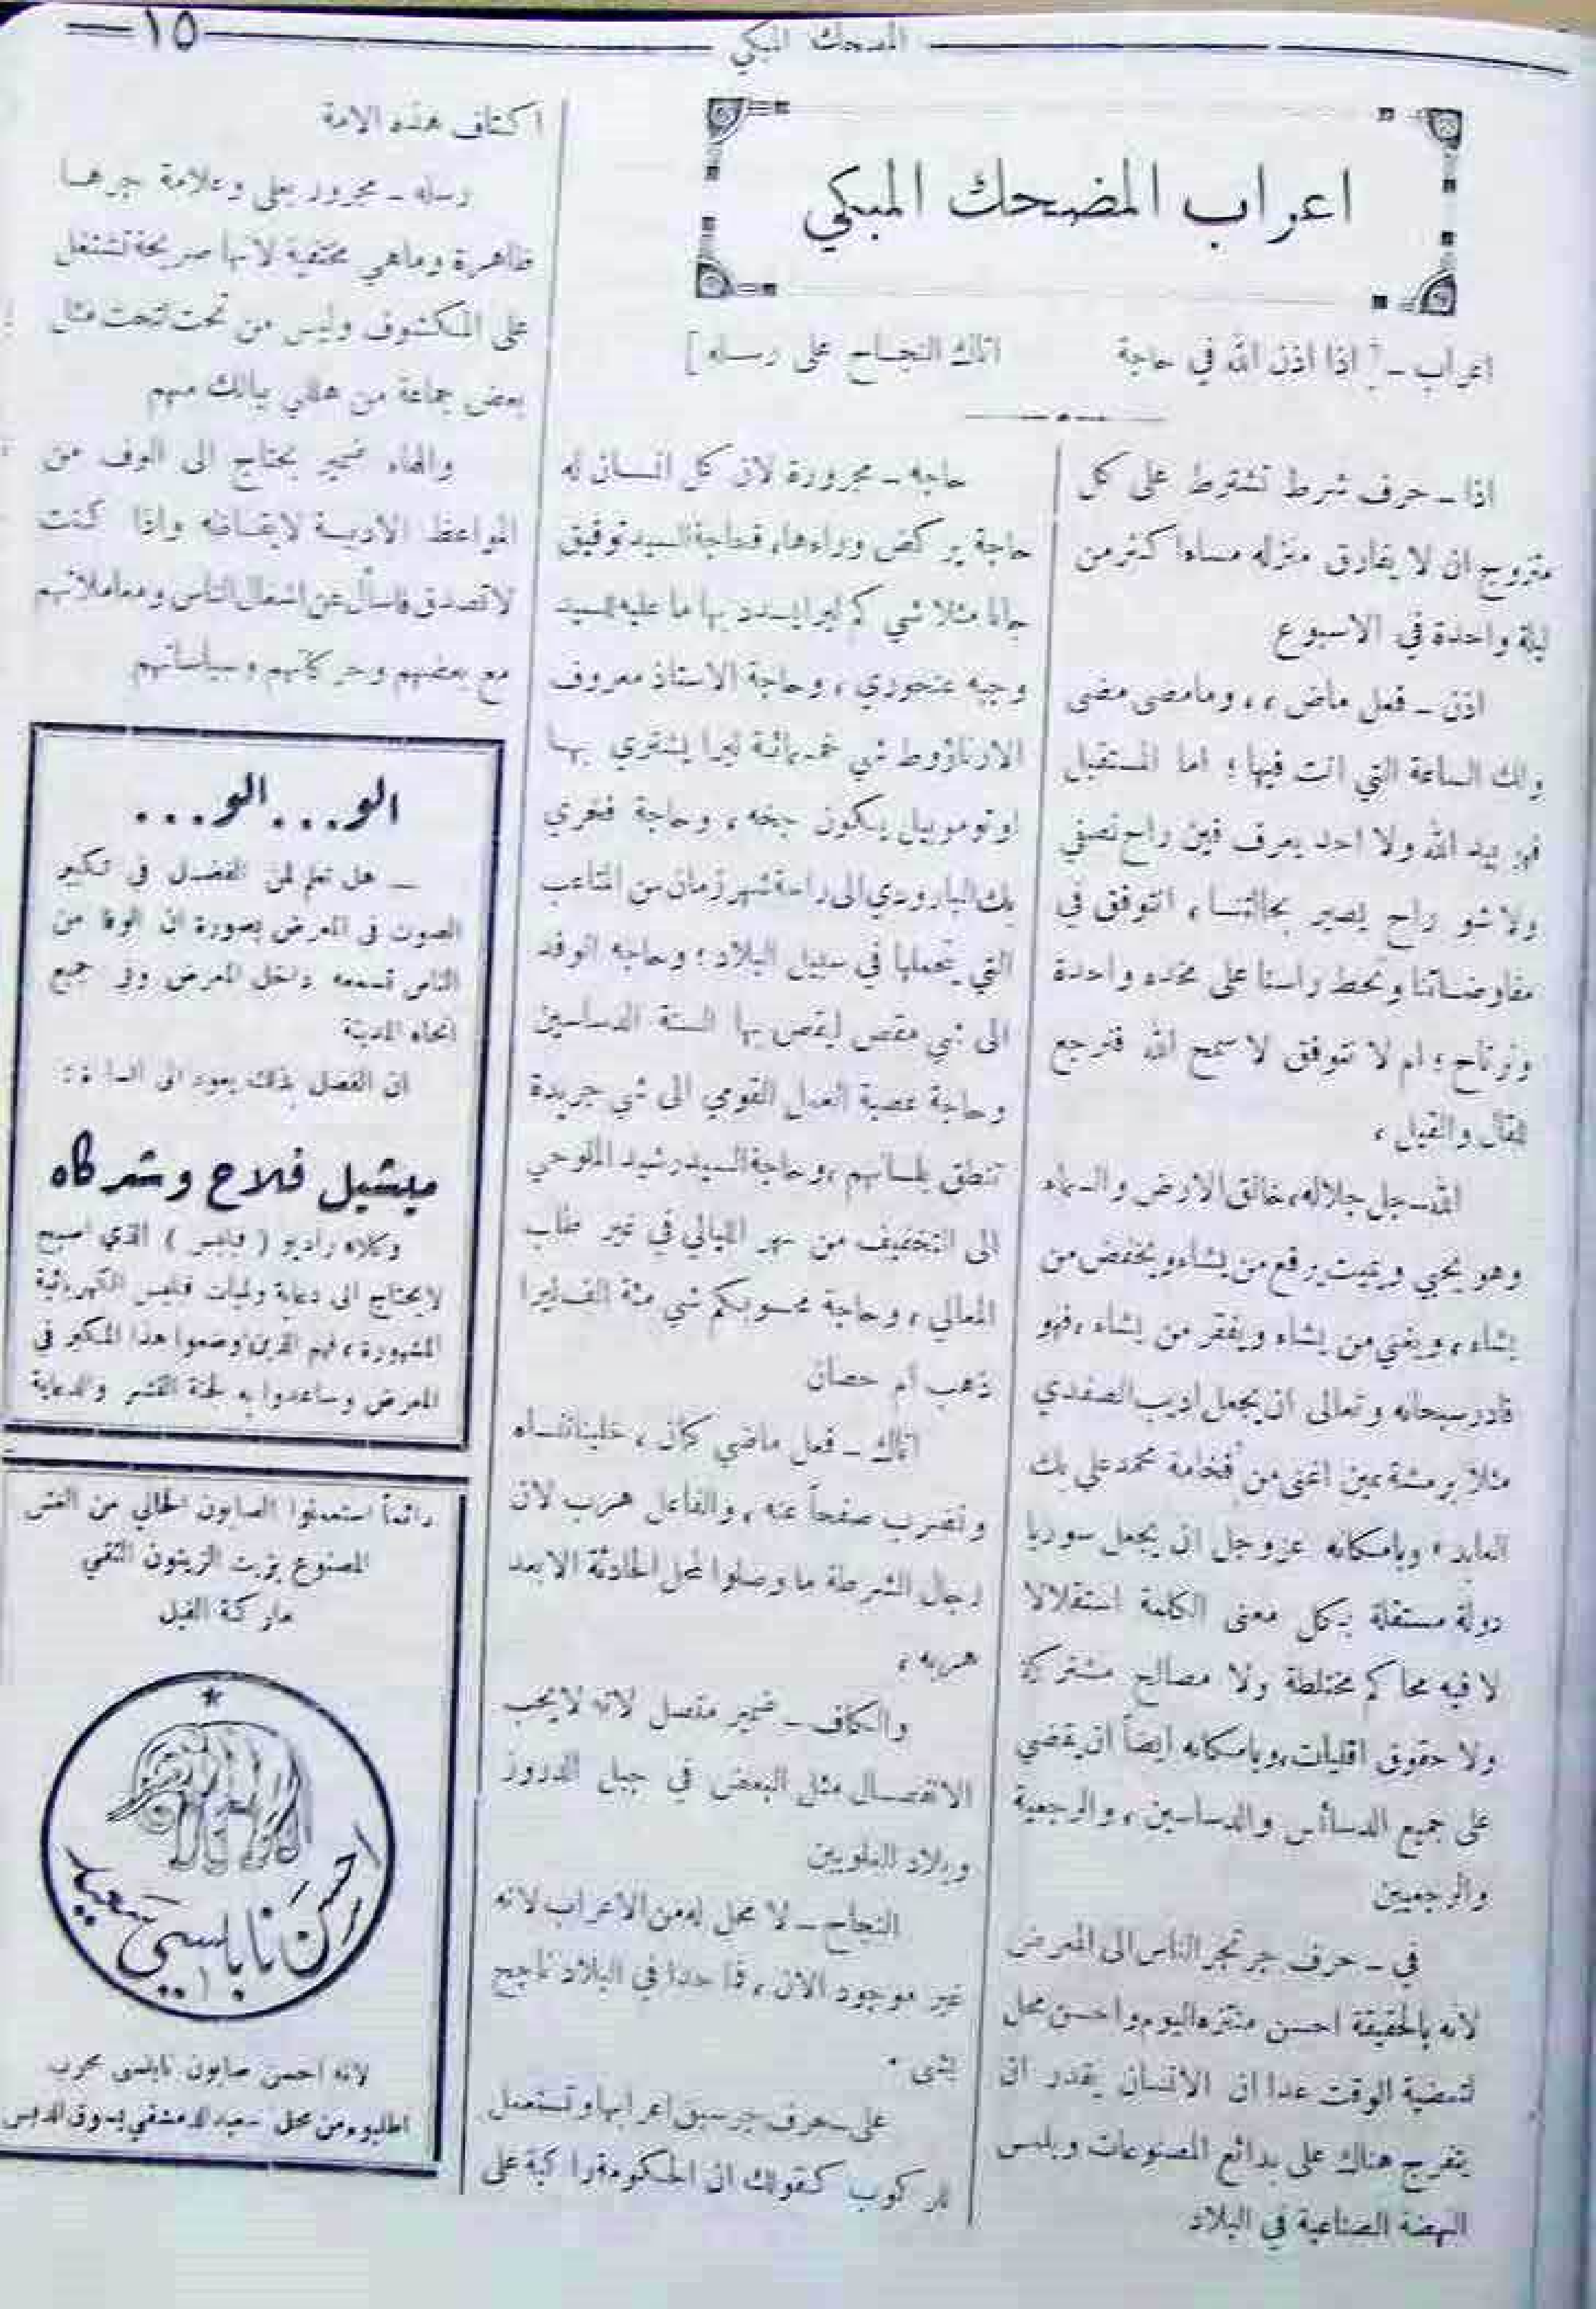 المضحك المبكي
١٥
اعراب المضحك المبكي
اعراب - [ اذا اذن الله في حاجة اتاك النجاح على رسله ]
اذا - حرف شرط تشترط على كل
متزوج ان لا يفارق منزله مساء اكثر من
ليلة واحدة في الاسبوع
اذن - فعل ماض ، ، وما مضى مضى
ولك الساعة التي انت فيها ؛ اما المستقبل
فهو بيد الله ولا احد يعرف فين راح نصفي
ولا شو راح يصير بحالتنا ، انتوفق في
مفاوضاتنا ونحط راسنا على مخده واحدة
ونرتاح ؛ ام لا نتوفق لا سمح الله فنرجع
للقال والقيل ،
الله - جل جلاله، خالق الارض والسماء
وهو يحيي ويميت يرفع من يشاء ويخفض من
يشاء ، ويغني من يشاء ويفقر من يشاء ، فهو
قادر سبحانه وتعالى ان يجعل اديب الصفدي
مثلا برمشة عين اغنى من فخامة محمد علي بك
العابد ، وبامكانه عز وجل ان يجعل سوريا
دولة مستقلة بكل معنى الكلمة استقلالا
لا فيه محاكم مختلطة ولا مصالح مشتركة
ولا حقوق اقليات، وبامكانه ايضاً ان يقضي
على جميع الدسائس والدساسين ، والرجعية
والرجعيين
في - حرف جر تجر الناس الى المعرض
لانه بالحقيقة احسن منتزه اليوم واحسن محل
لتمضية الوقت عدا ان الانسان يقدر ان
يتفرج هناك على بدائع المصنوعات ويلمس
النهضة الصناعية في البلاد
حاجه - مجرورة لان كل انسان له
حاجة يركض وراءها، فحاجة السيد توفيق
جانا مثلا شي كم ليرا يسدد بها ما عليه للسيد
وجيه عنحوري ، وحاجة الاستاذ معروف
الارناؤوط شي خمسمائة ليرا يشتري بها
اوتوموبيل يكون جخه ، وحاجة فخري
بك البارودي الى راحة شهر زمان من المتاعب
التي يتحملها في سبيل البلاد ؛ وحاجه الوفد
الى شي مقص ليقص بها السنة الدساسين
وحاجة عصبة العمل القومي الى شي جريدة
تنطق بلسانهم ، وحاجة السيد رشيد الملوحي
الى التخفيف من سهر الليالي في غير طلب
المعالي ، وحاجة محسوبكم شي مئة الف ليرا
ذهب ام حصان
اتاك - فعل ماضي كأن ، خلينا ننساه
ونضرب صفحاً عنه ، والفاعل هرب لان
رجال الشرطة ما وصلوا لمحل الحادثة الا بعد
هربه ،
والكاف - ضمير متصل لانه لا يحب
الانفصال مثل البعض في جبل الدروز
وبلاد العلويين
النجاح - لا محل له من الاعراب لانه
غير موجود الان ، فما حدا في البلاد ناجح
بشي .
على - حرف جر سبق اعرابها وتستعمل
للركوب كقولك ان الحكومة راكبة على
اكتاف هذه الامة
رسله - مجرور بعلى وعلامة جرها
ظاهرة وماهي مختفية لانها صريحة تشتغل
على المكشوف وليس من تحت لتحت مثل
بعض جماعة من هللي بالك منهم
والهاء ضمير يحتاج الى الوف من
المواعظ الادبية لايقاظه واذا كنت
لا تصدق فاسأل عن اشغال الناس ومعاملاتهم
مع بعضهم وحركاتهم وسياساتهم
الو...الو...
– هل تعلم لمن الفضل في تكبير
الصوت في المعرض بصورة ان الوفا من
الناس تسمعه داخل المعرض وفي جميع
انحاء المدينة
ان الفضل بذلك يعود الى السادة :
ميشيل فلاح وشركاه
وكلاء راديو ( فيلبس ) الذي اصبح
لا يحتاج الى دعاية ولمبات فيلبس الكهربائية
المشهورة ، فهم الذين وضعوا هذا المكبر في
المعرض وساعدوا به لجنة النشر والدعاية
دائماً استعملوا الصابون الخالي من الغش
المصنوع بزيت الزيتون النقي
ماركة الفيل
احسن نابلسي سعيد
لانه احسن صابون نابلسي مجرب
اطلبوه من محل سعيد الدمشقي بسوق الدبس